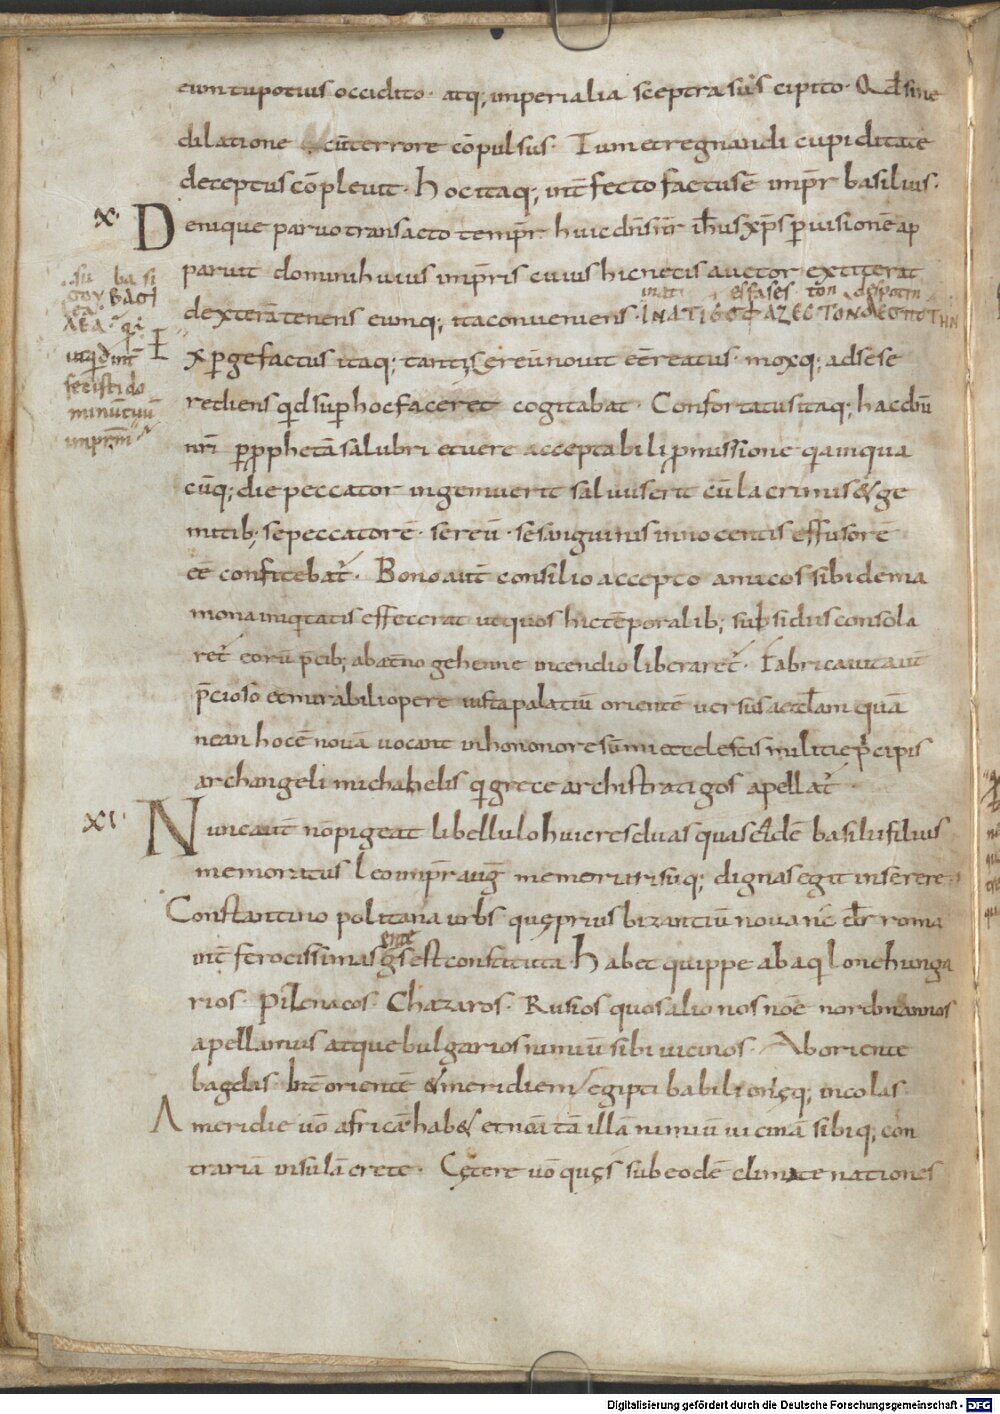 eum tu potius occidito· atq; imperialia sceptra suscipito· Qđ sine
dilatione cū terrore cōpulsus· Tum et regnandi cupiditate
deceptus cōplevit· Hoc itaq; intfecto factus ē impr basilius·
X· Denique parvo transacto tempr huic dns nr ihus xps p visionē ap
paruit dominihuius impris cuius hic necis auctor extiterat
inati essases ton despotin
dexterā tenens eumq; ita conveniens· INATIEC ΦAZECTONΔECΠOTHN
su ba si
ΣOY BACI
ΛEA· qi
ut qđ intfecisti dominū tuū imprm
xpgefactus itaq; tantę se reū novit eē reatus· moxq; ad se se
rediens qđ sup hoc faceret cogitabat· Confortatus itaq; hac dnī
nrī p pphetā salubri et vere acceptabili pmissione q̄a inqua
cūq; die peccator ingemuerit salvus erit cū lacrimis & ge
mitib; se peccatorē· se reū· se sanguinis innocentis effusorē
eē confitebat· Bono aut consilio accepto amicos sibi de ma
mona iniq̄tatis effecerat ut quos hic tēporalib; subsidiis consola
ret eorū p̄cib; ab aetno gehenne incendio liberaret· Fabricavit aut
p̄cioso et mirabili opere iuxta palatiū orientē versus aecclam quā
nean hoc ē novā vocant in hononore sūmi et celestis militię p̄cipis
archangeli michahelis qi grece archistratigos apellat·
XI· Nunc aut nō pigeat libellulo huic res duas quas eidē basilii filius
memoratus leo impr aug memoria risuq; dignas egit inserere·
Constantinopolitana urbs quę prius bizantiū nova nc dr roma
ente
int ferocissimas gs est constituta· Habet quippe ab aqilone hunga
rios· pizenacos· Chazaros· Rusios quos alio nos nōe nordmannos
apellamus atque bulgarios nimiū sibi vicinos· Ab oriente
bagdas· Int orientē & meridiem egipti babilonięq; incolas·
A meridie vō africā hab& et nōiatā illā nimiū vicinā sibiq; con
trariā insulā crete· Cętere vō quęs sub eodē climate nationes
Digitalisierung gefördert durch die Deutsche Forschungsgemeinschaft - DFG